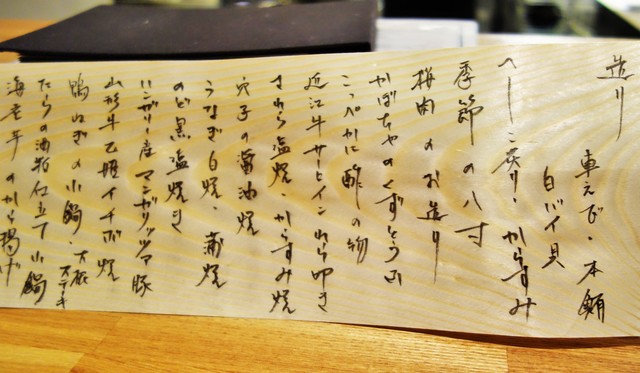 造り
車えび・本鮪
白バイ貝
へしこ炙り・からすみ
季節の八寸
桜肉のお造り
かぼちゃのくずとうふ
こっぺかに酢の物
近江牛サーロインわら叩き
さわら塩焼・からすみ焼
穴子の醤油焼
うなぎ白焼・蒲焼
のど黒塩焼き
ハンガリー産マンガリッツァ豚
山形牛乙姫イチボ焼
鴨ねぎの小鍋・大根ステーキ
たらの酒粕仕立て小鍋
海老芋のから揚げ